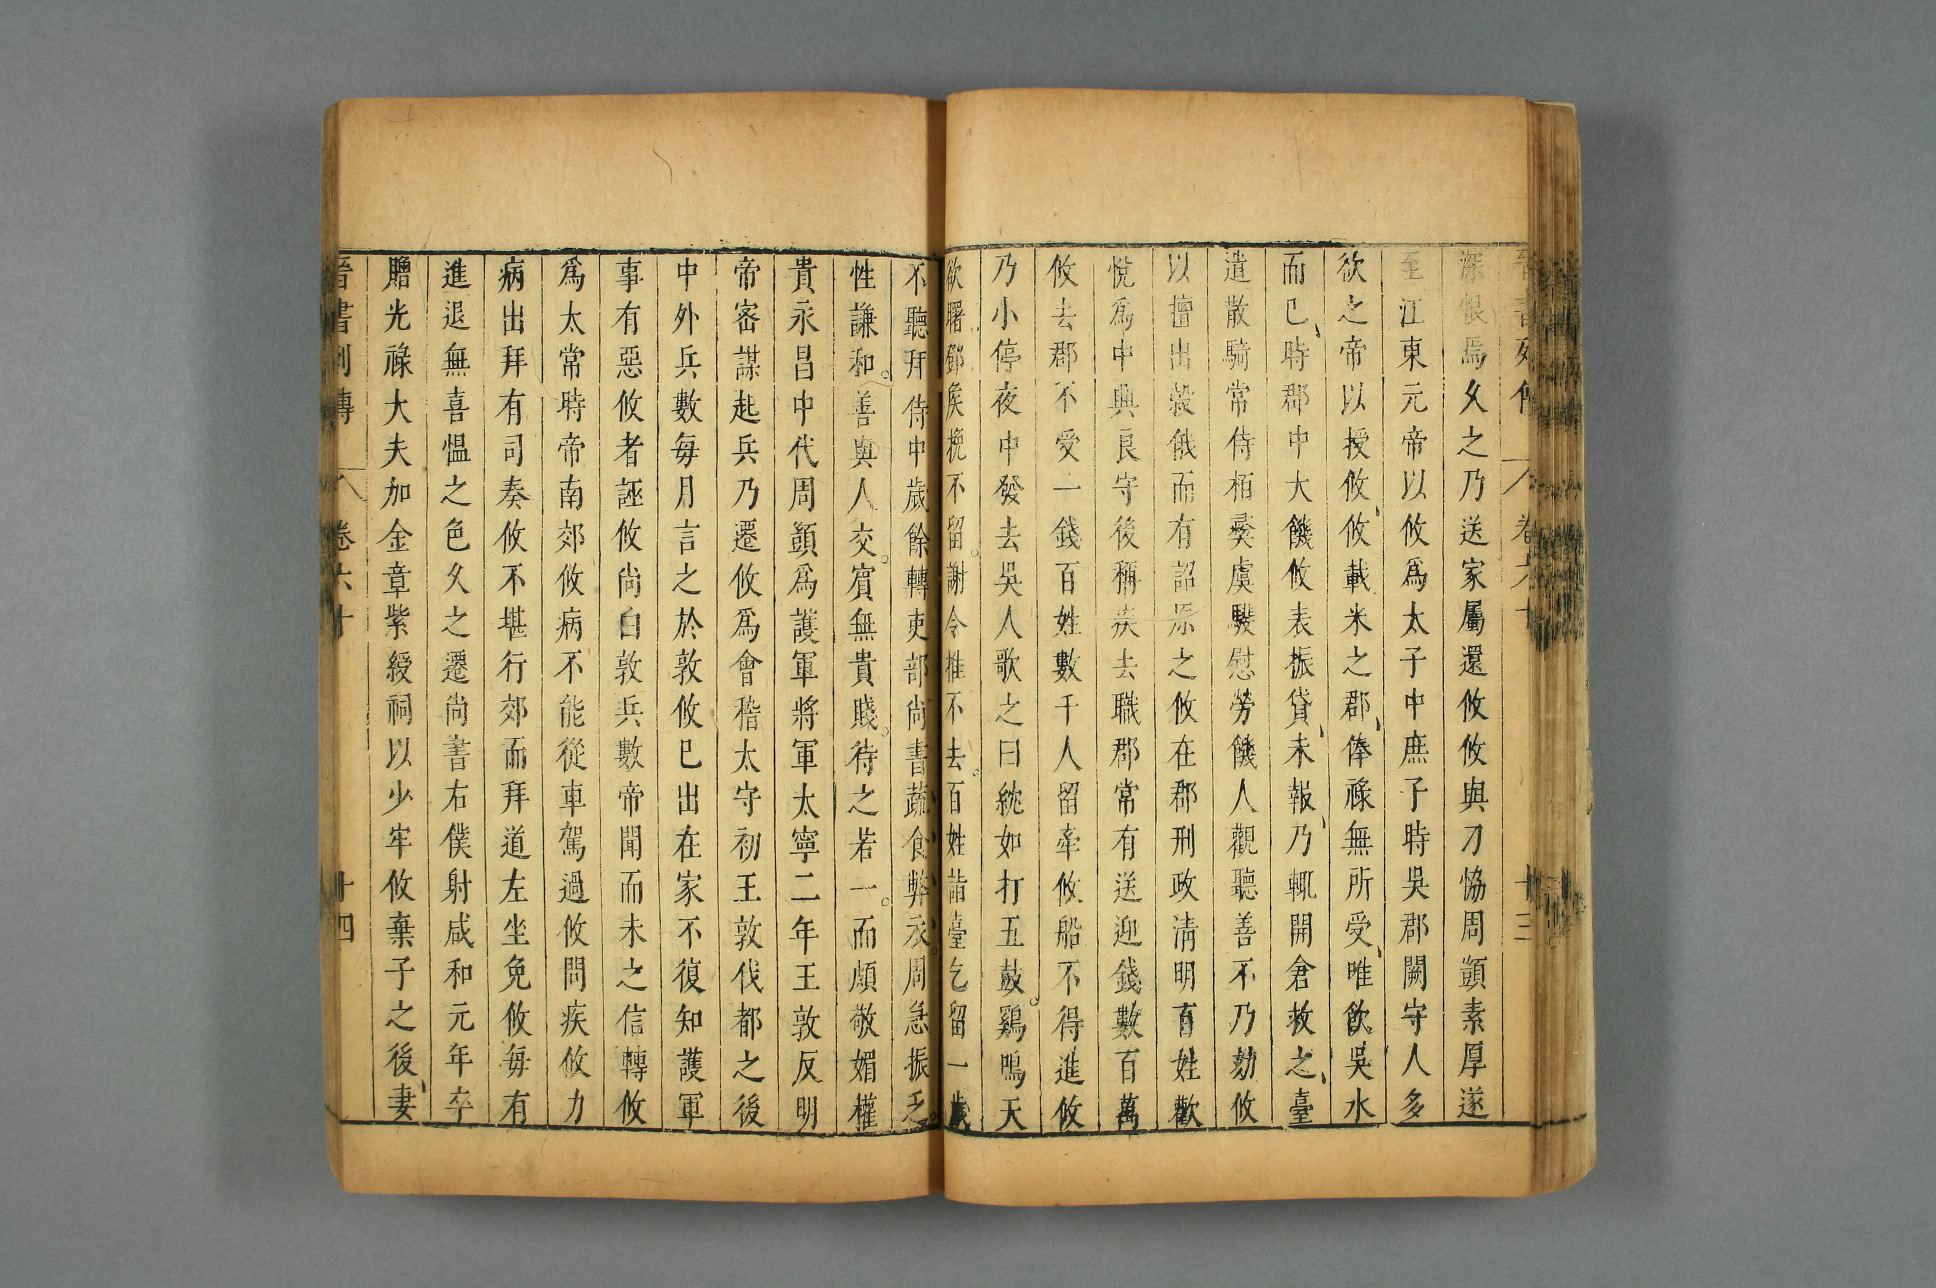 晉書列傳 卷六十 十三
深恨焉久之乃送家屬還攸攸與刁恊周顗素厚遂
至江東元帝以攸爲太子中庶子時吳郡闕守人多
欲之帝以授攸攸載米之郡俸祿無所受唯飲吳水
而已時郡中大饑攸表振貸未報乃輒開倉救之臺
遣散騎常侍栢彝虞𩦎慰勞饑人觀聽善不乃劾攸
以擅出穀俄而有詔原之攸在郡刑政清明百姓歡
悅爲中興良守後稱疾去職郡常有送迎錢數百萬
攸去郡不受一錢百姓數千人留牽攸船不得進攸
乃小停夜中發去吳人歌之曰紞如打五鼓鷄鳴天
欲曙鄧侯挽不留謝令推不去百姓詣臺乞留一歲
不聽拜侍中歲餘轉吏部尚書蔬食弊衣周急振乏
性謙和善與人交賔無貴賤待之若一而頗敬媚權
貴永昌中代周顗爲護軍將軍太寧二年王敦反明
帝密謀起兵乃遷攸爲會稽太守初王敦伐都之後
中外兵數每月言之於敦攸已出在家不復知護軍
事有惡攸者誣攸尚白敦兵數帝聞而未之信轉攸
爲太常時帝南郊攸病不能從車駕過攸問疾攸力
病出拜有司奏攸不堪行郊而拜道左坐免攸每有
進退無喜慍之色久之遷尚書右僕射咸和元年卒
贈光祿大夫加金章紫綬祠以少牢攸棄子之後妻
晉書列傳 卷六十 十四